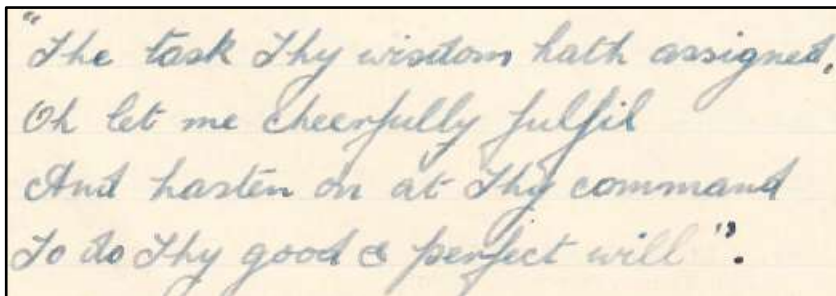 "The task Thy wisdom hath assigned,
Oh let me cheerfully fulfil
And hasten on at Thy command
To do Thy good & perfect will".